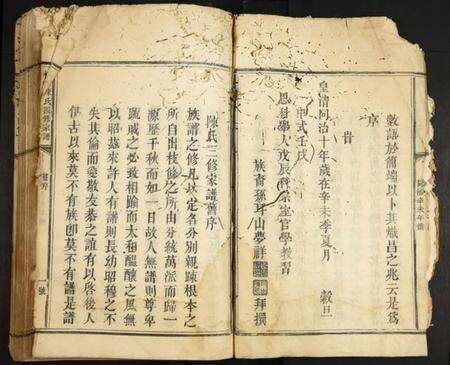 數語於簡端以卜其熾昌之兆云是爲
序
皇清同治十年歲在辛未季夏月 穀旦
甲戌壬戌
恩科舉人戊辰科宗室官學教習
族裔孫 山夢祥 拜撰
陳氏三修家譜舊序
族譜之修凡以定名分別親疎根本之
所自出枝修之所由分統萬派而歸一
源歷千秋而如一日故人無譜則尊卑
踰戚之必致相踰而太和醖釀之風無
以昭越來許人有譜則長幼昭穆之不
失其倫而愛敬友恭之誼有以啓後人
伊古以來莫不有族卽莫不有譜是譜
氏四修家譜
舊序
號